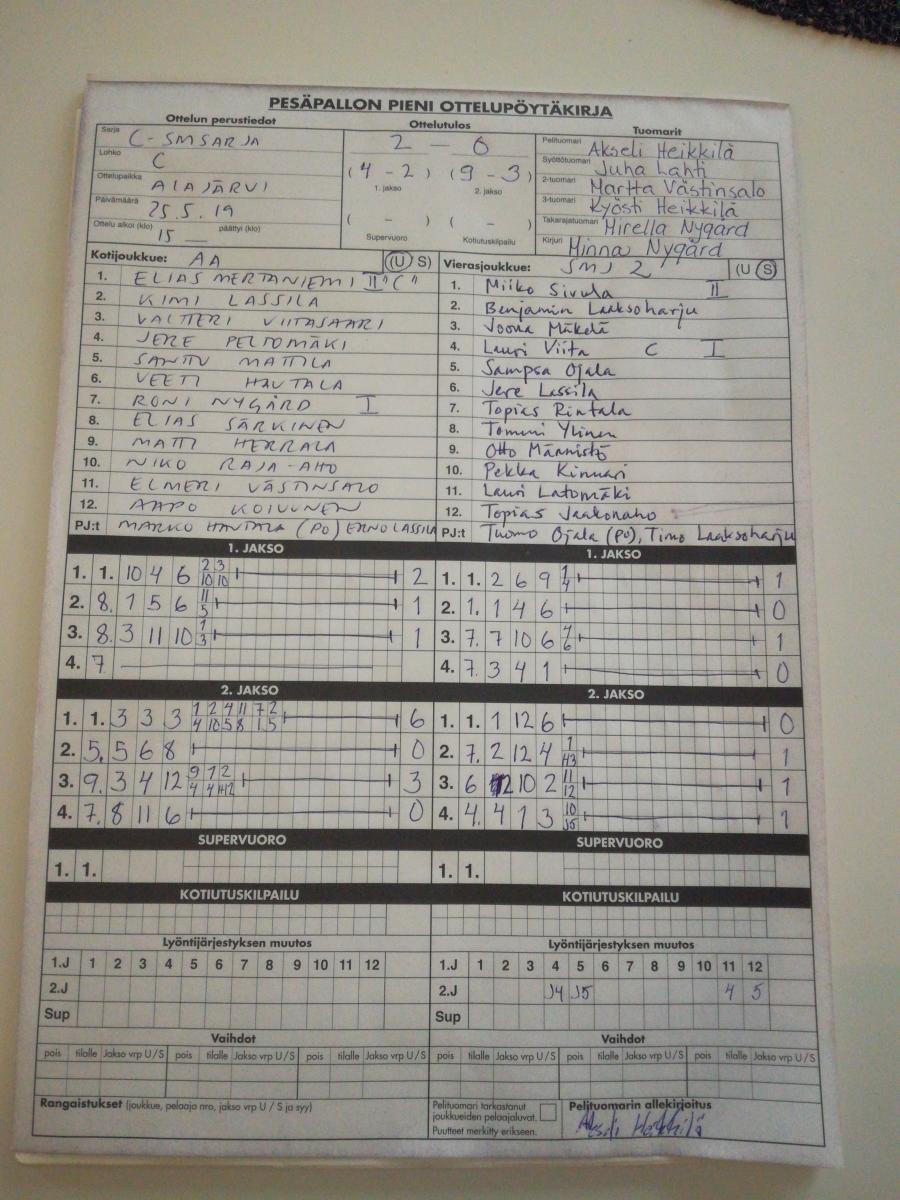 PESÄPALLON PIENI OTTELUPÖYTÄKIRJA
Ottelun perustiedot
Sarja C-SMSARJA
Lohko C
Ottelupaikka ALAJÄRVI
Päivämäärä 25.5.19
Ottelu alkoi (klo) 15 päättyi (klo)
Ottelutulos
2 – 0
(4 - 2) (9 - 3)
1. jakso 2. jakso
( - ) ( - )
Supervuoro Kotiutuskilpailu
Tuomarit
Pelituomari Akseli Heikkilä
Syöttötuomari Juha Lahti
2-tuomari Martta Västinsalo
3-tuomari Kyösti Heikkilä
Takarajatuomari Mirella Nygård
Kirjuri Minna Nygård
Kotijoukkue: AA (U S)
1. ELIAS MERTANIEMI II "C"
2. KIMI LASSILA
3. VALTTERI VIITASAARI
4. JERE PELTOMÄKI
5. SANTTU MATTILA
6. VEETI HAUTALA
7. RONI NYGÅRD I
8. ELIAS SÄRKINEN
9. MATTI HERRALA
10. NIKO RAJA-AHO
11. ELMERI VÄSTINSALO
12. AAPO KOIVUNEN
PJ:t MARKO HAUTALA (PO) ERNO LASSILA
Vierasjoukkue: SMJ 2 (U S)
1. Miiko Sivula II
2. Benjamin Laaksoharju
3. Joona Mäkelä
4. Lauri Viita C I
5. Sampsa Ojala
6. Jere Lassila
7. Topias Rintala
8. Tommi Ylinen
9. Otto Männistö
10. Pekka Kinnari
11. Lauri Latomäki
12. Topias Jaakonaho
PJ:t Tuomo Ojala (PO), Timo Laaksoharju
1. JAKSO
1. 1. 10 4 6 2/10 3/10 2
2. 8. 1 5 6 11/5 1
3. 8. 3 11 10 1/3 1
4. 7
2. JAKSO
1. 1. 3 3 3 1/4 2/10 4/5 11/8 7/1 2/5 6
2. 5. 5 6 8 0
3. 9. 3 4 12 9/4 1/4 2/12 3
4. 7. 8 11 6 0
SUPERVUORO
1. 1.
KOTIUTUSKILPAILU
Lyöntijärjestyksen muutos
1.J 1 2 3 4 5 6 7 8 9 10 11 12
2.J
Sup
Vaihdot
pois tilalle Jakso vrp U/S pois tilalle Jakso vrp U/S pois tilalle Jakso vrp U/S
Rangaistukset (joukkue, pelaaja nro, jakso vrp U / S ja syy)
1. JAKSO
1. 1. 2 6 9 1/4 1
2. 1. 1 4 6 0
3. 7. 7 10 6 4/6 1
4. 7. 3 4 1 0
2. JAKSO
1. 1. 1 12 6 0
2. 7. 2 12 4 1
3. 6 12 10 2 11/12 1
4. 4. 4 1 3 10/J5 1
SUPERVUORO
1. 1.
KOTIUTUSKILPAILU
Lyöntijärjestyksen muutos
1.J 1 2 3 4 5 6 7 8 9 10 11 12
2.J J4 J5 4 5
Sup
Vaihdot
pois tilalle Jakso vrp U/S pois tilalle Jakso vrp U/S pois tilalle Jakso vrp U/S
Pelituomari tarkastanut
joukkueiden pelaajaluvat.
Puutteet merkitty erikseen.
Pelituomarin allekirjoitus
Akseli Heikkilä